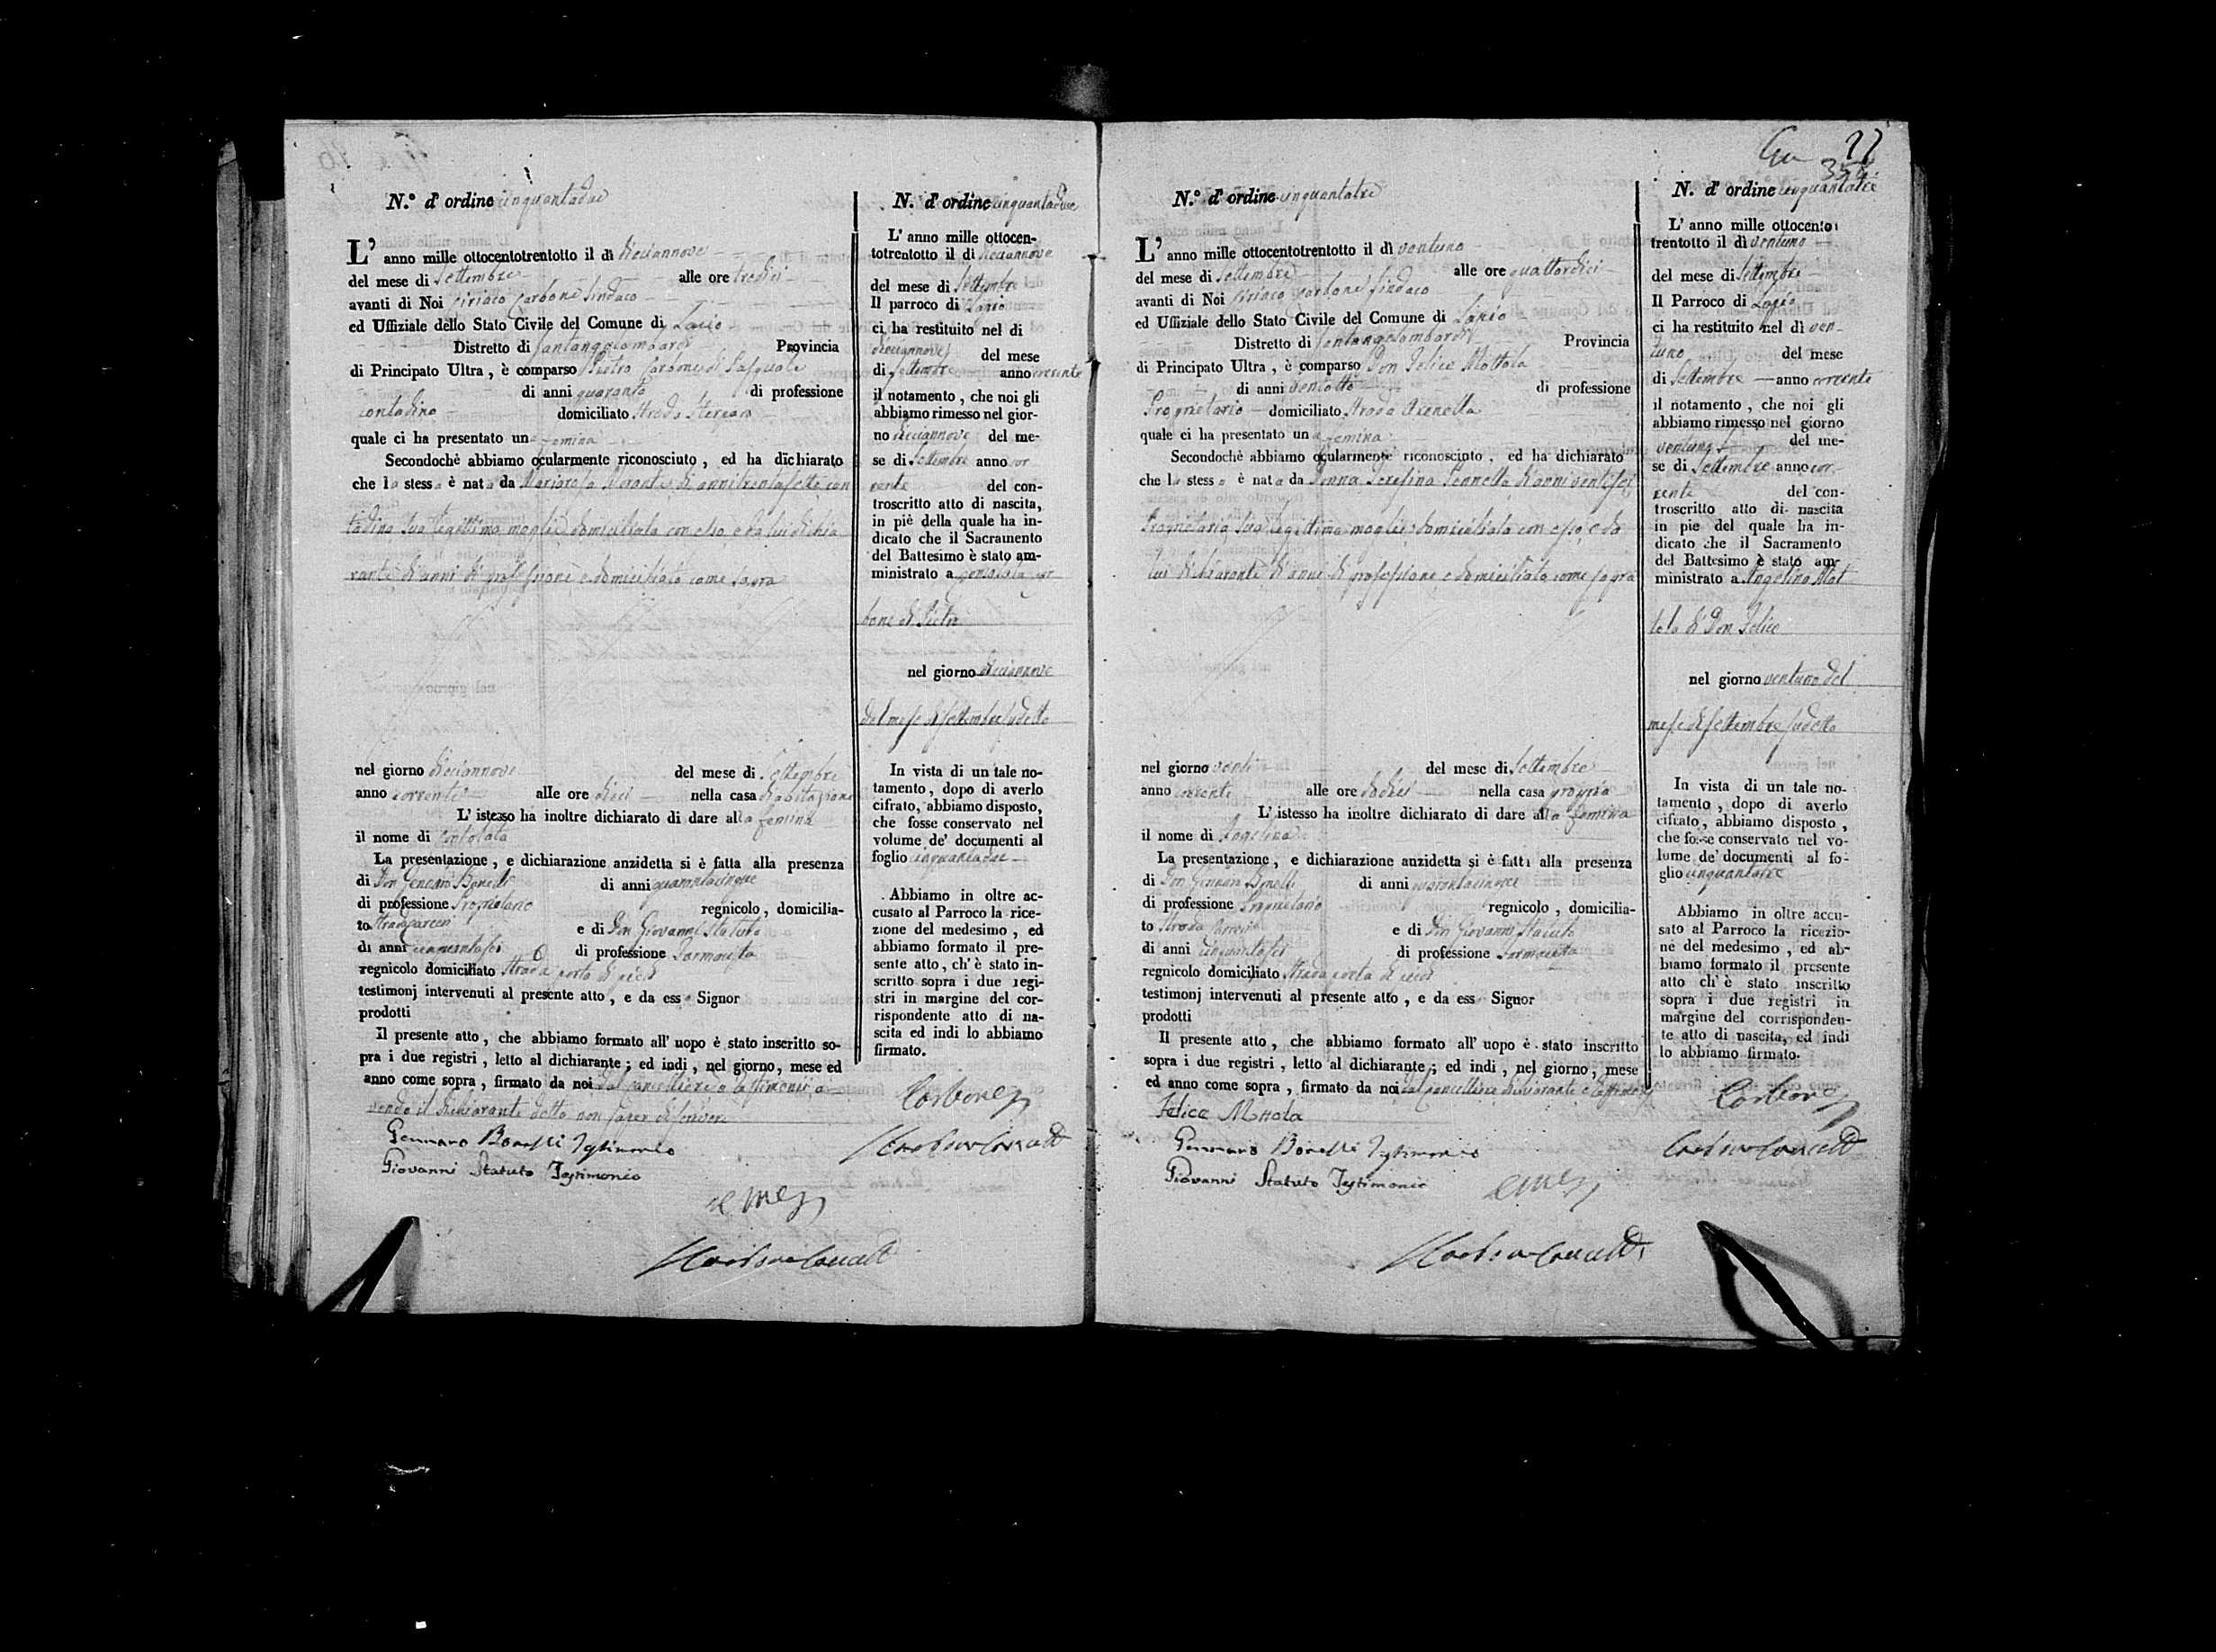 N.º d' ordine cinquantadue
L' anno mille ottocentotrentotto il dì diciannove
del mese di Settembre alle ore tredici
avanti di Noi Ciriaco Carbone Sindaco
ed Uffiziale dello Stato Civile del Comune di
Distretto di Santangelolombardi Provincia
di Principato Ultra, è comparso Pietro Carbone di Pasquale
di anni quaranta di professione
contadino domiciliato Strada
quale ci ha presentato una femina
Secondochè abbiamo ocularmente riconosciuto, ed ha dichiarato
che la stessa è nata da Mariarosa di anni trentasette con
tadina sua legittima moglie domiciliata con esso, e da lui dichia
rante di anni di professione e domiciliato come sopra
nel giorno diciannove del mese di Settembre
anno corrente alle ore dieci nella casa di abitazione
L' istesso ha inoltre dichiarato di dare alla femina
il nome di Consolata
La presentazione, e dichiarazione anzidetta si è fatta alla presenza
di Don Gennaro Bonelli di anni quarantacinque
di professione Proprietario regnicolo, domicilia-
to Strada e di Don Giovanni Statuto
di anni cinquantasei di professione Farmacista
regnicolo domiciliato Strada porta di
testimonj intervenuti al presente atto, e da ess Signor
prodotti
Il presente atto, che abbiamo formato all' uopo è stato inscritto so-
pra i due registri, letto al dichiarante; ed indi, nel giorno, mese ed
anno come sopra, firmato da noi dal cancelliere e testimonii a
vendo il dichiarante detto non saper di scrivere
Gennaro Bonelli Testimonio
Giovanni Statuto Testimonio
N. d' ordine cinquantadue
L' anno mille ottocen-
totrentotto il dì diciannove
del mese di Settembre
Il parroco di
ci ha restituito nel dì
diciannove del mese
di Settembre anno corrente
il notamento, che noi gli
abbiamo rimesso nel gior-
no diciannove del me-
se di Settembre anno cor
rente del con-
troscritto atto di nascita,
in piè della quale ha in-
dicato che il Sacramento
del Battesimo è stato am-
ministrato a Consolata Car
bone di Pietro
nel giorno diciannove
del mese di Settembre sudetto
In vista di un tale no-
tamento, dopo di averlo
cifrato, abbiamo disposto,
che fosse conservato nel
volume de' documenti al
foglio cinquantadue
Abbiamo in oltre ac-
cusato al Parroco la rice-
zione del medesimo, ed
abbiamo formato il pre-
sente atto, ch' è stato in-
scritto sopra i due regi-
stri in margine del cor-
rispondente atto di na-
scita ed indi lo abbiamo
firmato.
Carbone
27
N.º d' ordine cinquantatre
L' anno mille ottocentotrentotto il dì ventuno
del mese di Settembre alle ore quattordici
avanti di Noi Ciriaco Carbone Sindaco
ed Uffiziale dello Stato Civile del Comune di
Distretto di Santangelolombardi Provincia
di Principato Ultra, è comparso Don Felice Mottola
di anni ventotto di professione
Proprietario domiciliato Strada
quale ci ha presentato una femina
Secondochè abbiamo ocularmente riconosciuto, ed ha dichiarato
che la stessa è nata da Donna Serafina di anni ventisei
Proprietaria sua legittima moglie domiciliata con esso, e da
lui dichiarante di anni di professione e domiciliato come sopra
nel giorno venti del mese di Settembre
anno corrente alle ore dodici nella casa propria
L' istesso ha inoltre dichiarato di dare alla femina
il nome di Angelina
La presentazione, e dichiarazione anzidetta si è fatta alla presenza
di Don Gennaro Bonelli di anni quarantacinque
di professione Proprietario regnicolo, domicilia-
to Strada e di Don Giovanni Statuto
di anni cinquantasei di professione Farmacista
regnicolo domiciliato Strada porta di
testimonj intervenuti al presente atto, e da ess Signor
prodotti
Il presente atto, che abbiamo formato all' uopo è stato inscritto
sopra i due registri, letto al dichiarante; ed indi, nel giorno, mese
ed anno come sopra, firmato da noi dal cancelliere dichiarante e testimonii
Felice Mottola
Gennaro Bonelli Testimonio
Giovanni Statuto Testimonio
N. d' ordine cinquantatre
L' anno mille ottocento
trentotto il dì ventuno
del mese di Settembre
Il Parroco di
ci ha restituito nel dì ven-
tuno del mese
di Settembre anno corrente
il notamento, che noi gli
abbiamo rimesso nel giorno
ventuno del me-
se di Settembre anno cor-
rente del con-
troscritto atto di nascita
in pie del quale ha in-
dicato che il Sacramento
del Battesimo è stato am-
ministrato a Angelina Mot
tola di Don Felice
nel giorno ventuno del
mese di Settembre sudetto
In vista di un tale no-
tamento, dopo di averlo
cifrato, abbiamo disposto,
che fosse conservato nel vo-
lume de' documenti al fo-
glio cinquantatre
Abbiamo in oltre accu-
sato al Parroco la ricezio-
ne del medesimo, ed ab-
biamo formato il presente
atto ch' è stato inscritto
sopra i due registri in
margine del corrisponden-
te atto di nascita, ed indi
lo abbiamo firmato.
Carbone